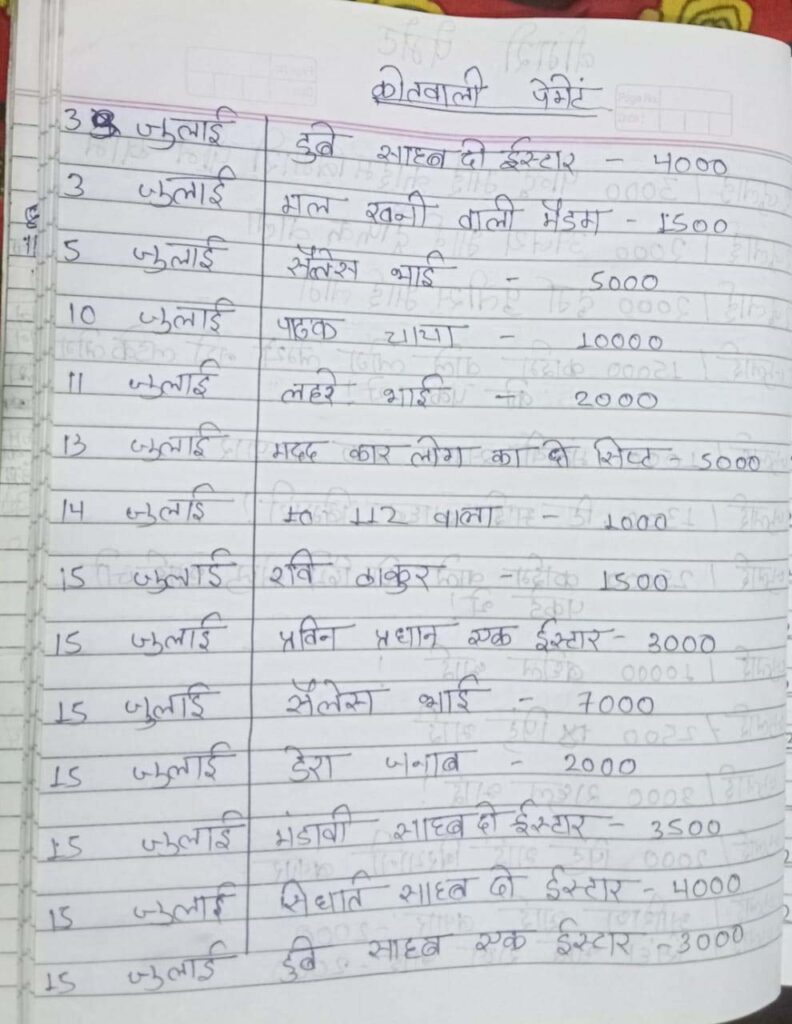 कोतवाली पेमेंट
3 जुलाई डुबे साहब दो ईस्टार - 4000
3 जुलाई मल खनी वाली मैडम - 1500
5 जुलाई सैलेस भाई - 5000
10 जुलाई पाठक चाचा - 10000
11 जुलाई लहरे भाई - 2000
13 जुलाई मदद कार लोग का दो सिप्ट - 5000
14 जुलाई 112 वाला - 1000
15 जुलाई रवि ठाकुर - 1500
15 जुलाई प्रविन प्रधान एक ईस्टार - 3000
15 जुलाई सैलेस भाई - 7000
15 जुलाई डेरा जनाब - 2000
15 जुलाई मंडावी साहब दो ईस्टार - 3500
15 जुलाई सिधार्त साहब दो ईस्टार - 4000
15 जुलाई डुबे साहब एक ईस्टार - 3000